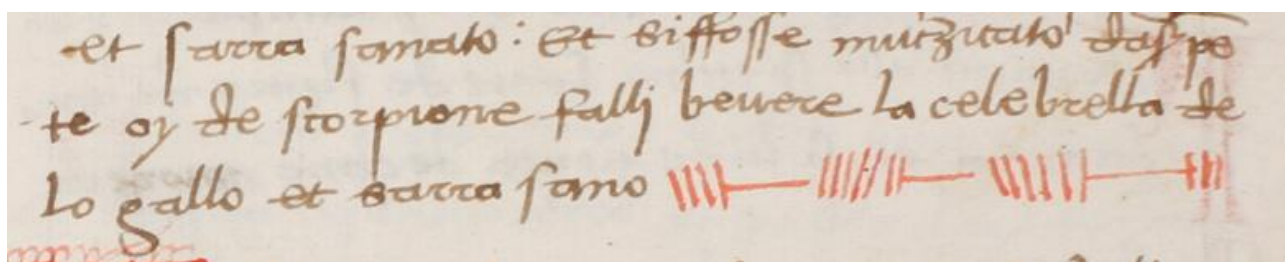 et sarra sanato: Et siffosse muczicato da s̃pẽ
te oy de scorpione falli bevere la celebrella de
lo gallo et sarra sano